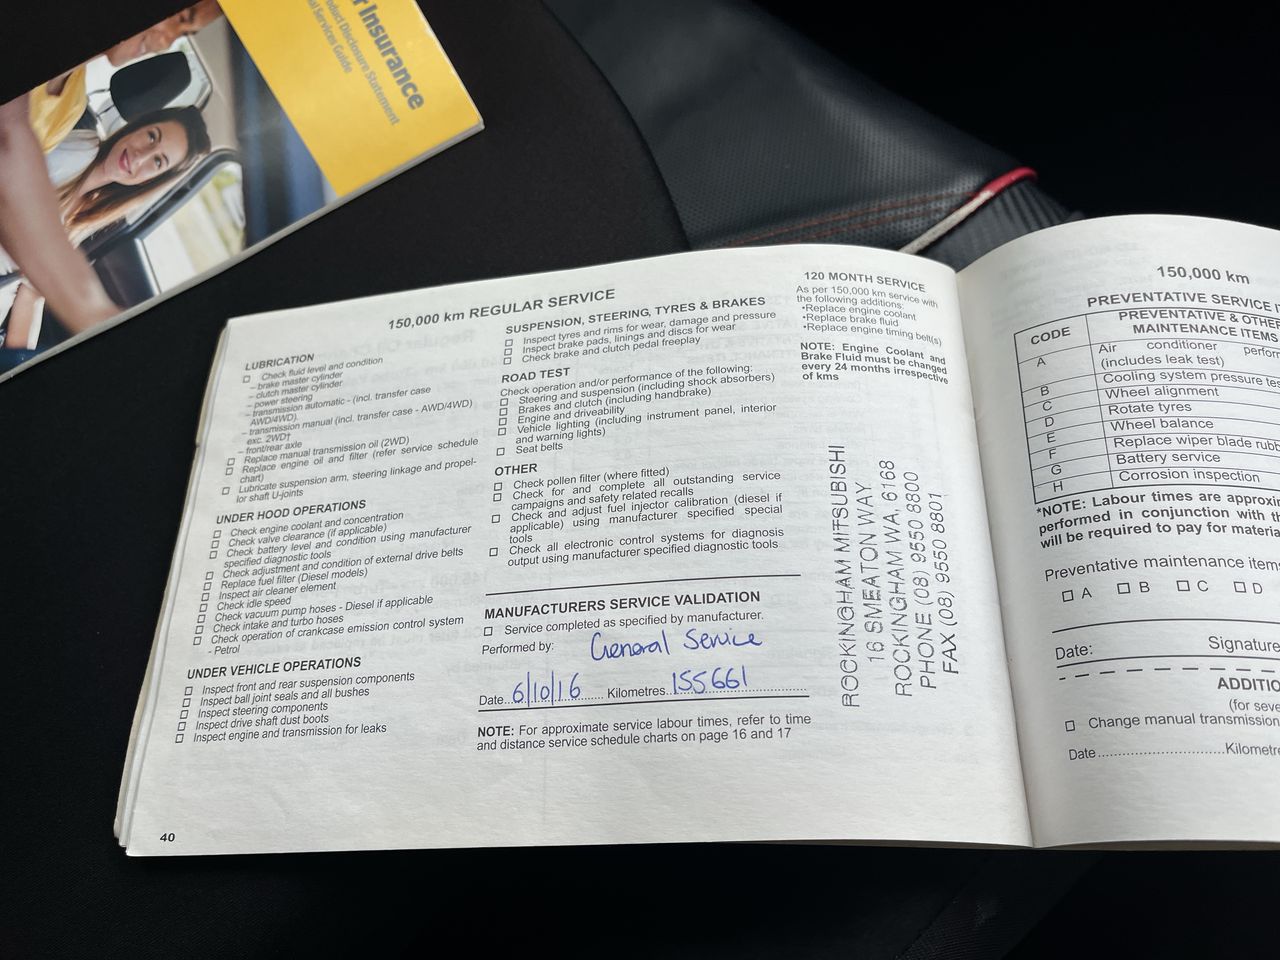 r Insurance
oduct Disclosure Statement
al Services Guide
150,000 km REGULAR SERVICE
LUBRICATION
☐ Check fluid level and condition
– brake master cylinder
– clutch master cylinder
– power steering
– transmission automatic - (incl. transfer case
AWD/4WD)
– transmission manual (incl. transfer case - AWD/4WD)
exc. 2WD†
– front/rear axle
☐ Replace manual transmission oil (2WD)
☐ Replace engine oil and filter (refer service schedule
chart)
☐ Lubricate suspension arm, steering linkage and propel-
lor shaft U-joints
UNDER HOOD OPERATIONS
☐ Check engine coolant and concentration
☐ Check valve clearance (if applicable)
☐ Check battery level and condition using manufacturer
specified diagnostic tools
☐ Check adjustment and condition of external drive belts
☐ Replace fuel filter (Diesel models)
☐ Inspect air cleaner element
☐ Check idle speed
☐ Check vacuum pump hoses - Diesel if applicable
☐ Check intake and turbo hoses
☐ Check operation of crankcase emission control system
- Petrol
UNDER VEHICLE OPERATIONS
☐ Inspect front and rear suspension components
☐ Inspect ball joint seals and all bushes
☐ Inspect steering components
☐ Inspect drive shaft dust boots
☐ Inspect engine and transmission for leaks
SUSPENSION, STEERING, TYRES & BRAKES
☐ Inspect tyres and rims for wear, damage and pressure
☐ Inspect brake pads, linings and discs for wear
☐ Check brake and clutch pedal freeplay
ROAD TEST
Check operation and/or performance of the following:
☐ Steering and suspension (including shock absorbers)
☐ Brakes and clutch (including handbrake)
☐ Engine and driveability
☐ Vehicle lighting (including instrument panel, interior
and warning lights)
☐ Seat belts
OTHER
☐ Check pollen filter (where fitted)
☐ Check for and complete all outstanding service
campaigns and safety related recalls
☐ Check and adjust fuel injector calibration (diesel if
applicable) using manufacturer specified special
tools
☐ Check all electronic control systems for diagnosis
output using manufacturer specified diagnostic tools
MANUFACTURERS SERVICE VALIDATION
☐ Service completed as specified by manufacturer.
Performed by: General Service
Date..6/10/16.....Kilometres..155661
NOTE: For approximate service labour times, refer to time
and distance service schedule charts on page 16 and 17
120 MONTH SERVICE
As per 150,000 km service with
the following additions:
•Replace engine coolant
•Replace brake fluid
•Replace engine timing belt(s)
NOTE: Engine Coolant and
Brake Fluid must be changed
every 24 months irrespective
of kms
ROCKINGHAM MITSUBISHI
16 SMEATON WAY
ROCKINGHAM WA, 6168
PHONE (08) 9550 8800
FAX (08) 9550 8601
40
150,000 km
PREVENTATIVE SERVICE I
CODE PREVENTATIVE & OTHE
MAINTENANCE ITEMS
A Air conditioner perform
(includes leak test)
B Cooling system pressure tes
C Wheel alignment
D Rotate tyres
E Wheel balance
F Replace wiper blade rubb
G Battery service
H Corrosion inspection
*NOTE: Labour times are approxi
performed in conjunction with th
will be required to pay for materia
Preventative maintenance items
☐ A ☐ B ☐ C ☐ D
Date: Signature
ADDITIO
(for seve
☐ Change manual transmission
Date......................Kilometre